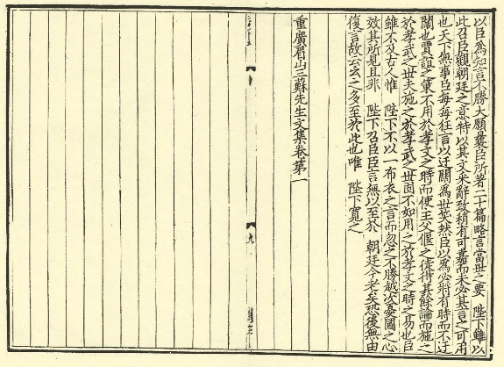 以臣為知言不勝大願曩臣所著二十篇略言當世之要 陛下雖以
此召臣觀朝廷之意特以其文采辭致稍有可嘉而未必其言之可用
也天下無事臣每每狂言以迂闊為世笑然臣以為必將有時而不迂
闊也賈誼之策不用於孝文之時而使主父偃之徒得其餘論而施之
於孝武之世夫施之於孝武之世固不如用之於孝文之時之易也臣
雖不及古人惟 陛下不以一布衣之言而忽之不勝越次憂國之心
效其所見且非 陛下召臣臣言無以至於 朝廷今老矣恐後無由
復言故云云之多至於此也唯 陛下寬之
重廣眉山三蘇先生文集卷第一